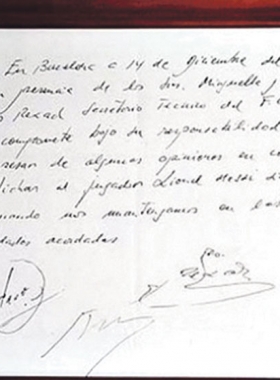 En Barcelona a 14 de Diciembre del
presencia de los Srs. Minguella y
Rexach Secretario Tecnico del F.
compromete bajo su responsabilidad
pesar de algunas opiniones en co
fichar al jugador Lionel Messi s
cuando nos mantengamos en las
dades acordadas